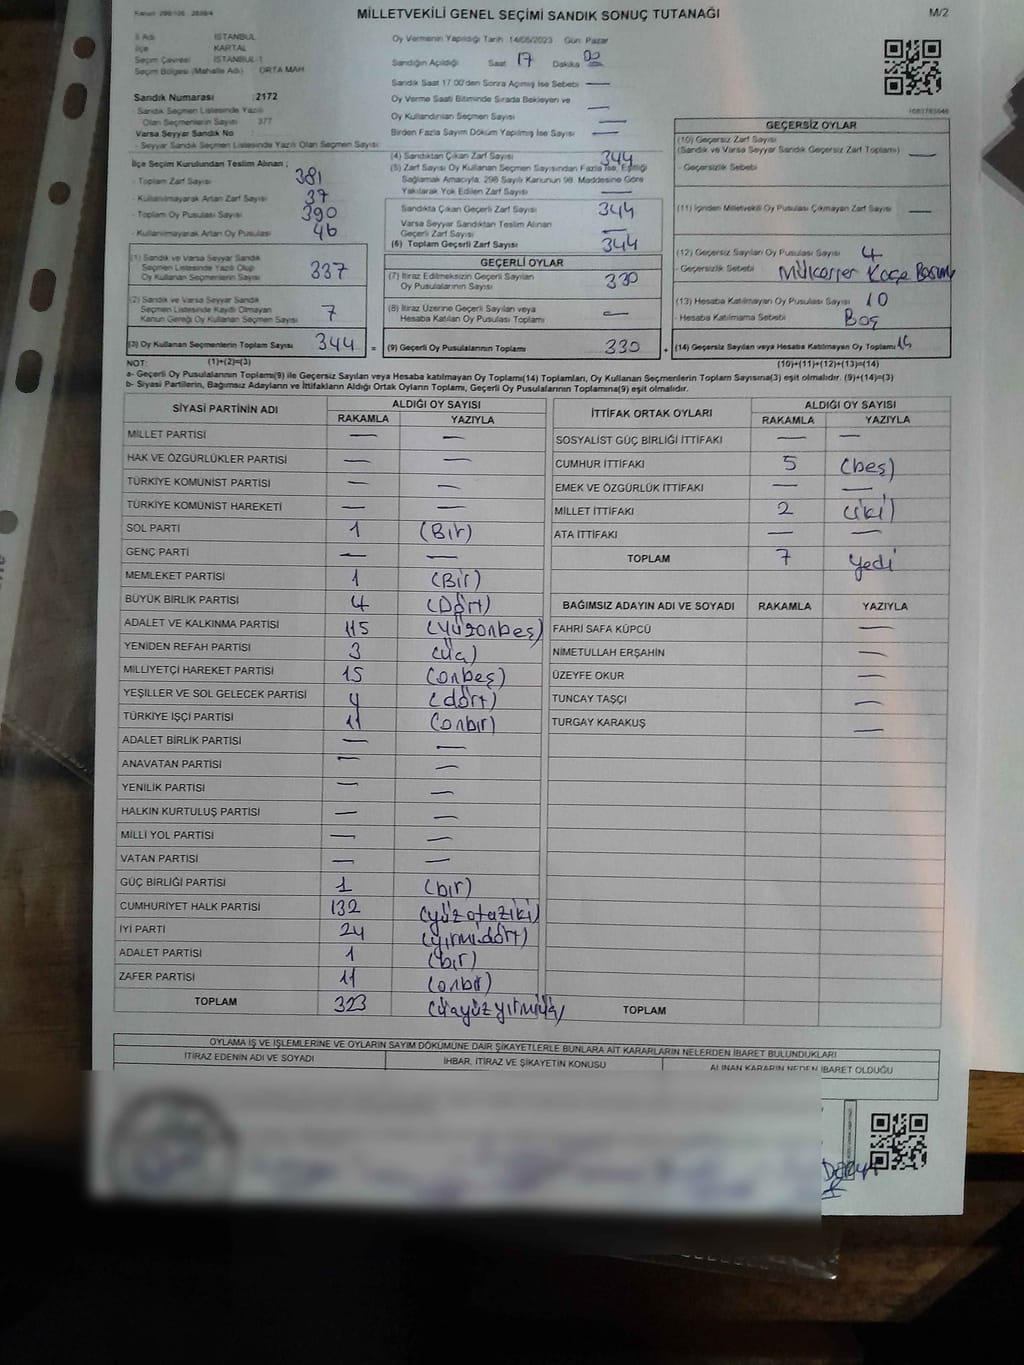 MİLLETVEKİLİ GENEL SEÇİMİ SANDIK SONUÇ TUTANAĞI
M/2
İl Adı İSTANBUL
İlçe KARTAL
Seçim Çevresi İSTANBUL-1
Seçim Bölgesi (Mahalle Adı) ORTA MAH
Sandık Numarası : 2172
- Sandık Seçmen Listesinde Yazılı
Olan Seçmenlerin Sayısı 377
Varsa Seyyar Sandık No :
- Seyyar Sandık Seçmen Listesinde Yazılı Olan Seçmen Sayısı:
Oy Vermenin Yapıldığı Tarih 14/05/2023 Gün: Pazar
Sandığın Açıldığı Saat 17 Dakika 00
Sandık Saat 17:00'den Sonra Açılmış İse Sebebi —
Oy Verme Saati Bitiminde Sırada Bekleyen ve —
Oy Kullandırılan Seçmen Sayısı —
Birden Fazla Sayım Döküm Yapılmış İse Sayısı —
İlçe Seçim Kurulundan Teslim Alınan ;
- Toplam Zarf Sayısı 381
- Kullanılmayarak Artan Zarf Sayısı 37
- Toplam Oy Pusulası Sayısı 390
- Kullanılmayarak Artan Oy Pusulası 46
(1) Sandık ve Varsa Seyyar Sandık
Seçmen Listesinde Yazılı Olup
Oy Kullanan Seçmenlerin Sayısı 337
(2) Sandık ve Varsa Seyyar Sandık
Seçmen Listesinde Kayıtlı Olmayan
Kanun Gereği Oy Kullanan Seçmen Sayısı 7
(3) Oy Kullanan Seçmenlerin Toplam Sayısı 344 =
(4) Sandıktan Çıkan Zarf Sayısı 344
(5) Zarf Sayısı Oy Kullanan Seçmen Sayısından Fazla İse, Eşitliği
Sağlamak Amacıyla, 298 Sayılı Kanunun 98. Maddesine Göre
Yakılarak Yok Edilen Zarf Sayısı —
Sandıkta Çıkan Geçerli Zarf Sayısı 344
Varsa Seyyar Sandıktan Teslim Alınan
Geçerli Zarf Sayısı —
(6) Toplam Geçerli Zarf Sayısı 344
GEÇERLİ OYLAR
(7) İtiraz Edilmeksizin Geçerli Sayılan
Oy Pusulalarının Sayısı 330
(8) İtiraz Üzerine Geçerli Sayılan veya
Hesaba Katılan Oy Pusulası Toplamı —
(9) Geçerli Oy Pusulalarının Toplamı 330 +
GEÇERSİZ OYLAR
(10) Geçersiz Zarf Sayısı
(Sandık ve Varsa Seyyar Sandık Geçersiz Zarf Toplamı) —
- Geçersizlik Sebebi
(11) İçinden Milletvekili Oy Pusulası Çıkmayan Zarf Sayısı —
(12) Geçersiz Sayılan Oy Pusulası Sayısı 4
- Geçersizlik Sebebi
(13) Hesaba Katılmayan Oy Pusulası Sayısı 10
- Hesaba Katılmama Sebebi Boş
(14) Geçersiz Sayılan veya Hesaba Katılmayan Oy Toplamı 14
NOT: (1)+(2)=(3) (10)+(11)+(12)+(13)=(14)
a- Geçerli Oy Pusulalarının Toplamı(9) ile Geçersiz Sayılan veya Hesaba katılmayan Oy Toplamı(14) Toplamları, Oy Kullanan Seçmenlerin Toplam Sayısına(3) eşit olmalıdır. (9)+(14)=(3)
b- Siyasi Partilerin, Bağımsız Adayların ve İttifakların Aldığı Ortak Oyların Toplamı, Geçerli Oy Pusulalarının Toplamına(9) eşit olmalıdır.
SİYASİ PARTİNİN ADI ALDIĞI OY SAYISI
RAKAMLA YAZIYLA
MİLLET PARTİSİ — —
HAK VE ÖZGÜRLÜKLER PARTİSİ — —
TÜRKİYE KOMÜNİST PARTİSİ — —
TÜRKİYE KOMÜNİST HAREKETİ — —
SOL PARTİ 1 (Bir)
GENÇ PARTİ — —
MEMLEKET PARTİSİ 1 (Bir)
BÜYÜK BİRLİK PARTİSİ 4 (Dört)
ADALET VE KALKINMA PARTİSİ 115 (Yüzonbeş)
YENİDEN REFAH PARTİSİ 3 (üç)
MİLLİYETÇİ HAREKET PARTİSİ 15 (onbeş)
YEŞİLLER VE SOL GELECEK PARTİSİ 4 (dört)
TÜRKİYE İŞÇİ PARTİSİ 11 (onbir)
ADALET BİRLİK PARTİSİ — —
ANAVATAN PARTİSİ — —
YENİLİK PARTİSİ — —
HALKIN KURTULUŞ PARTİSİ — —
MİLLİ YOL PARTİSİ — —
VATAN PARTİSİ — —
GÜÇ BİRLİĞİ PARTİSİ 1 (bir)
CUMHURİYET HALK PARTİSİ 132 (yüzotuziki)
İYİ PARTİ 24 (yirmidört)
ADALET PARTİSİ 1 (bir)
ZAFER PARTİSİ 11 (onbir)
TOPLAM 323 (üçyüzyirmiüç)
İTTİFAK ORTAK OYLARI ALDIĞI OY SAYISI
RAKAMLA YAZIYLA
SOSYALİST GÜÇ BİRLİĞİ İTTİFAKI — —
CUMHUR İTTİFAKI 5 (beş)
EMEK VE ÖZGÜRLÜK İTTİFAKI — —
MİLLET İTTİFAKI 2 (iki)
ATA İTTİFAKI — —
TOPLAM 7 Yedi
BAĞIMSIZ ADAYIN ADI VE SOYADI RAKAMLA YAZIYLA
FAHRİ SAFA KÜPCÜ —
NİMETULLAH ERŞAHİN —
ÜZEYFE OKUR —
TUNCAY TAŞÇI —
TURGAY KARAKUŞ —
TOPLAM
OYLAMA İŞ VE İŞLEMLERİNE VE OYLARIN SAYIM DÖKÜMÜNE DAİR ŞİKAYETLERLE BUNLARA AİT KARARLARIN NELERDEN İBARET BULUNDUKLARI
İTİRAZ EDENİN ADI VE SOYADI İHBAR, İTİRAZ VE ŞİKAYETİN KONUSU ALINAN KARARIN NEDEN İBARET OLDUĞU